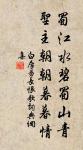 蜀江水碧蜀山青
聖主朝朝暮暮情
白居易長恨歌詞典詞
集